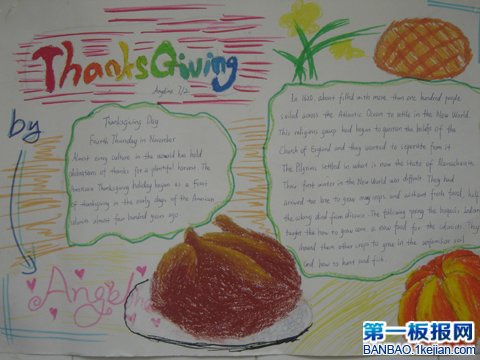 ThanksGiving
Angelina 7/2
by
Angelina
Thanksgiving Day
Fourth Thursday in November
Almost every culture in the world has held
celebrations of thanks for a plentiful harvest. The
American Thanksgiving holiday began as a feast
of thanksgiving in the early days of the American
colonies almost four hundred years ago
In 1620, a boat filled with more than one hundred people
sailed across the Atlantic Ocean to settle in the New World.
This religious group had begun to question the beliefs of the
Church of England and they wanted to separate from it.
The Pilgrims settled in what is now the state of Massachusetts.
Their first winter in the New World was difficult. They had
arrived too late to grow many crops, and without fresh food, half
the colony died from disease. The following spring the Iroquois Indians
taught them how to grow corn, a new food for the colonists. They
showed them other crops to grow in the unfamiliar soil
and how to hunt and fish.
第一板报网
BANBAO.1kejian.com